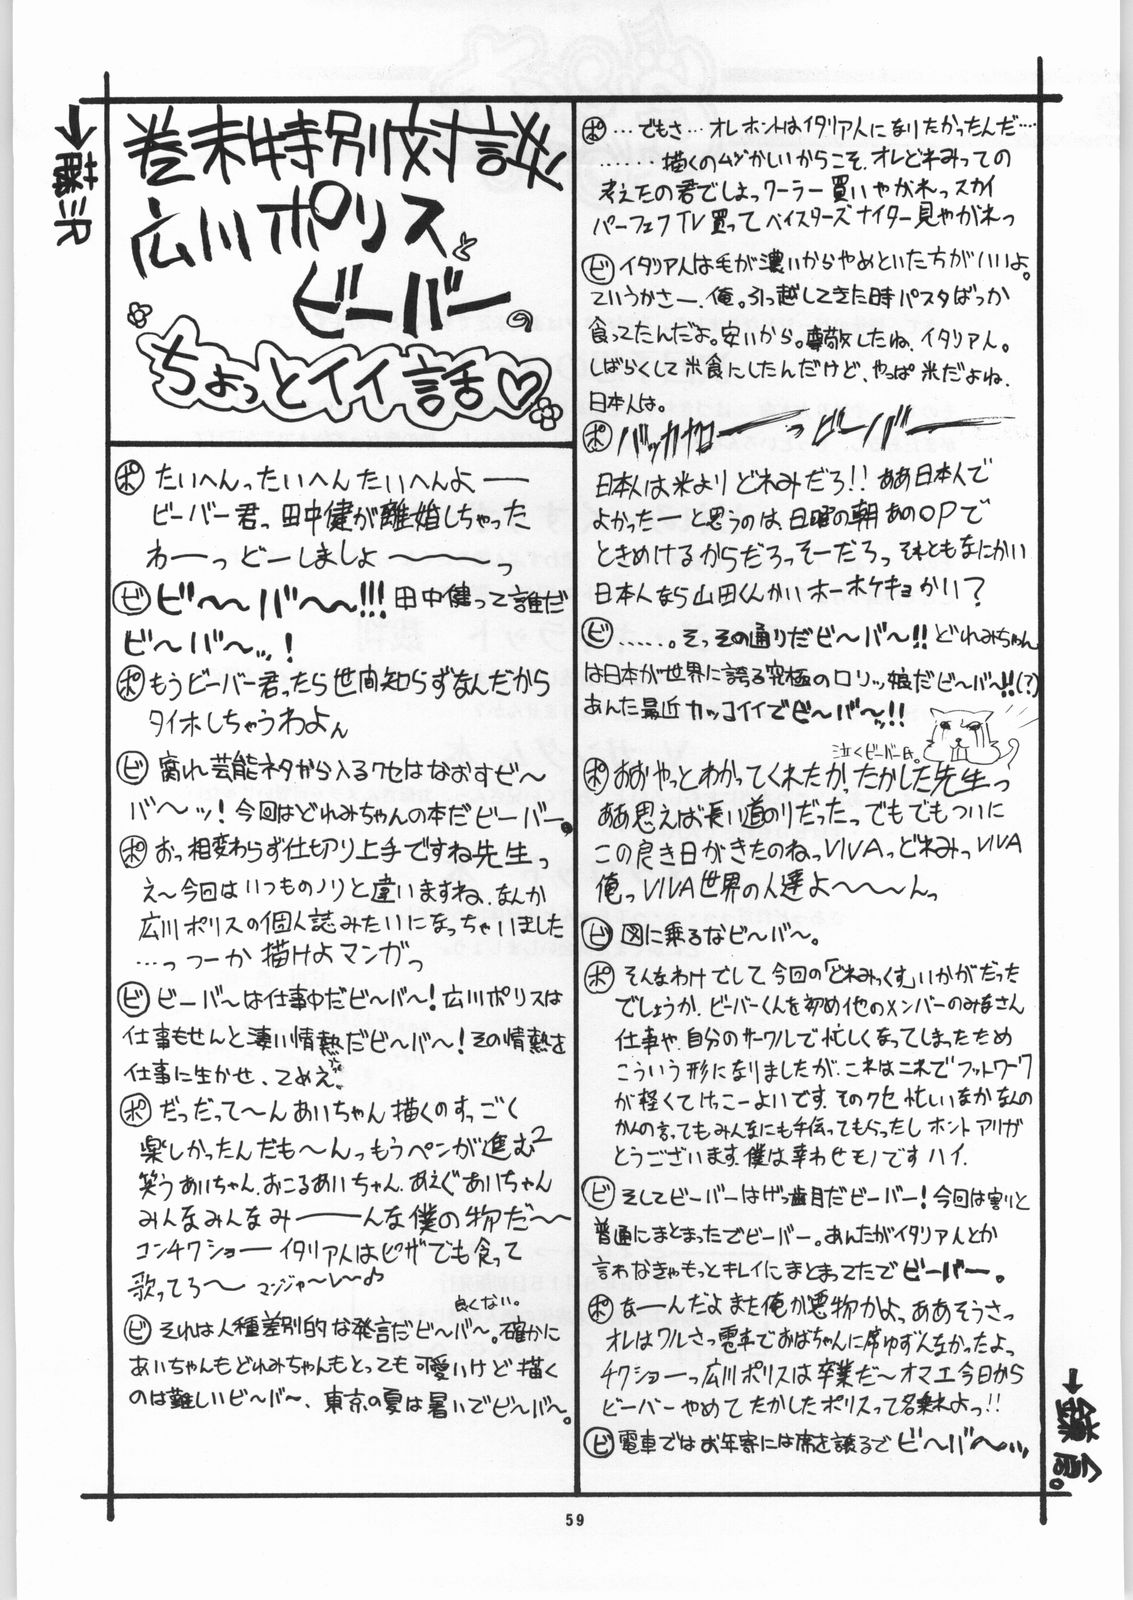 巻末特別対談!
広川ポリスと
ビーバーの
ちょっとイイ話♡
↓藤沢
ポ たいへんったいへんたいへんよ――
ビーバー君っ田中健が離婚しちゃった
わーーっどーしましょ〜〜〜〜っ
ビ ビ〜〜バ〜〜!!! 田中健って誰だ
ビ〜バ〜ッ!
ポ もうビーバー君ったら世間知らずなんだから
タイホしちゃうわよん
ビ 腐れ芸能ネタから入るクセはなおすビ〜
バ〜ッ!今回はどれみちゃんの本だビーバー。
ポ おっ相変わらず仕切り上手ですね先生っ
え〜今回はいつものノリと違いますね、なんか
広川ポリスの個人誌みたいになっちゃいました
…っつーか描けよマンガっ
ビ ビーバ〜は仕事中だビ〜バ〜!広川ポリスは
仕事もせんと凄い情熱だビ〜バ〜!その情熱を
仕事に生かせ、てめえ。
ポ だっだって〜んあいちゃん描くのすっごく
楽しかったんだも〜んっもうペンが進む2
笑うあいちゃん、おこるあいちゃん、あえぐあいちゃん
みんなみんなみ―――んな僕の物だ〜〜
コンチクショーイタリア人はピザでも食って
歌ってろ〜 マンジャ〜レ〜♪
良くない。
ビ それは人種差別的な発言だビ〜バ〜。確かに
あいちゃんもどれみちゃんもとっても可愛いけど描く
のは難しいビ〜バ〜、東京の夏は暑いでビ〜バ〜。
ポ …でもさ…オレホントはイタリア人になりたかったんだ……
………描くのムズかしいからこそ、オレどれみっての
考えたの君でしょっクーラー買いやがれっスカイ
パーフェクTV買ってベイスターズナイター見やがれっ
ビ イタリア人は毛が濃いからやめといた方がいいよ。
ていうかさー、俺。引っ越してきた時パスタばっか
食ってたんだよ。安いから。尊敬したね、イタリアん。
しばらくして米食にしたんだけど、やっぱ米だよね、
日本人は。
ポ バッカヤローーっビーバーー
日本人は米よりどれみだろ!!ああ日本人で
よかったーと思うのは、日曜の朝あのOPで
ときめけるからだろっそーだろっそれともなにかい
日本人なら山田くんかいホーホケキョかい?
ビ ……。そっその通りだビ〜バ〜!!どれみちゃん
は日本が世界に誇る究極のロリッ娘だビ〜バ〜!!(?)
あんた最近カッコイイでビ〜バ〜ッ!!
泣くビーバー氏。
ポ おおやっとわかってくれたか!たかした先生っ
ああ思えば長い道のりだったっでもでもついに
この良き日がきたのねっVIVAっどれみっVIVA
俺っVIVA世界の人達よ〜〜〜んっ
ビ 図に乗るなビ〜バ〜。
ポ そんなわけでして今回の「どれみっくす」いかがだった
でしょうか、ビーバーくんを初め他のメンバーのみなさん
仕事や、自分のサークルで忙しくなってしまったため
こういう形になりましたが、これはこれでフットワーク
が軽くてけっこーよいです、そのクセ忙しいなかなんの
かんの言ってもみんなにも手伝ってもらったしホントアリガ
とうございます、僕は幸わせモノですハイ、
ビ そしてビーバーはげっ歯目だビーバー!今回は割りと
普通にまとまったでビーバー。あんたがイタリア人とか
言わなきゃもっとキレイにまとまってたでビーバー。
ポ なーーんだよまた俺が悪物かよっああそうさっ
オレはワルさっ電車でおばちゃんに席ゆずんなかったよっ
チクショーっ広川ポリスは卒業だ〜オマエ今日から
ビーバーやめてたかしたポリスって名乗れよっ!!
ビ 電車ではお年寄には席を譲るでビ〜バ〜…
59